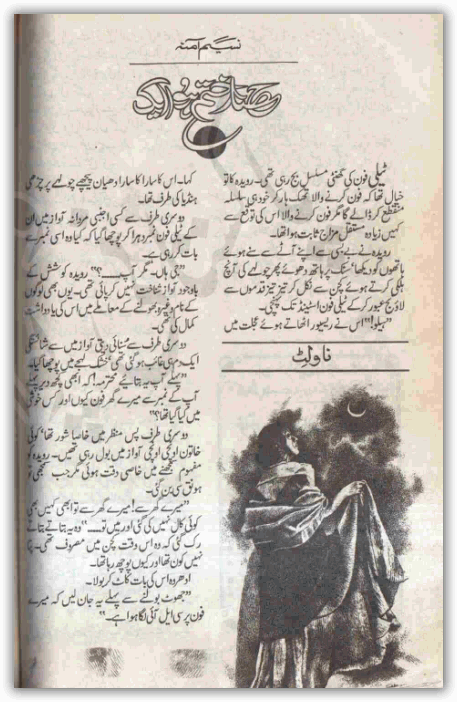 نسیم آمنہ
ٹیلی فون کی گھنٹی مسلسل بج رہی تھی۔ رویدہ کا تو
خیال تھا کہ فون کرنے والا تھک ہار کر خود ہی سلسلہ
منقطع کر ڈالے گا مگر فون کرنے والا اس کی توقع سے
کہیں زیادہ مستقل مزاج ثابت ہوا تھا۔
رویدہ نے بے بسی سے اپنے آٹے سے سنے ہوئے
ہاتھوں کو دیکھا، سنک پر ہاتھ دھوئے پھر چولہے کی آنچ
ہلکی کرتے ہوئے کچن سے نکل کر تیز تیز قدموں سے
لاؤنج عبور کر کے ٹیلی فون اسٹینڈ تک پہنچی۔
"ہیلو!" اس نے ریسیور اٹھاتے ہوئے عجلت میں
ناولٹ
کہا۔ اس کا سارا کا سارا دھیان پیچھے چولہے پر چڑھی
ہنڈیا کی طرف تھا۔
دوسری طرف سے کسی اجنبی مردانہ آواز میں ان
کے ٹیلی فون نمبر دہرا کر پوچھا گیا کہ کیا وہ اسی نمبر سے
بات کر رہی ہے۔
"جی ہاں۔ مگر آپ ــــ؟" رویدہ کوشش کے
باوجود آواز شناخت نہیں کر پائی تھی۔ یوں بھی لوگوں
کے نام وغیرہ بھولنے کے معاملے میں اس کی یادداشت
کمال کی تھی۔
دوسری طرف سے سنائی دیتی آواز میں سے شائستگی
ایک دم ہی غائب ہو گئی تھی، خشک لہجے میں پوچھا گیا۔
"پہلے آپ یہ بتائیے محترمہ! کہ ابھی کچھ دیر پہلے
آپ کے نمبر سے میرے گھر فون کیوں اور کس خوشی
میں کیا گیا تھا؟"
دوسری طرف پس منظر میں خاصا شور تھا، کوئی
خاتون اونچی اونچی آواز میں بول رہی تھیں۔ رویدہ کو
مفہوم سمجھنے میں خاصی دقت ہوئی مگر جب سمجھی تو
ہونق سی بن گئی۔
"میرے گھر سے! میرے گھر سے تو ابھی کہیں بھی
کوئی کال نہیں کی گئی اور میں تو ــــ" وہ یہ بتاتے بتاتے
رک گئی کہ وہ اس وقت کچن میں مصروف تھی۔ پتا
نہیں کون تھا اور کیوں پوچھ رہا تھا۔
ادھر وہ اس کی بات کاٹ کر بولا۔
"جھوٹ بولنے سے پہلے یہ جان لیں کہ میرے
فون پر سی ایل آئی لگا ہوا ہے۔"